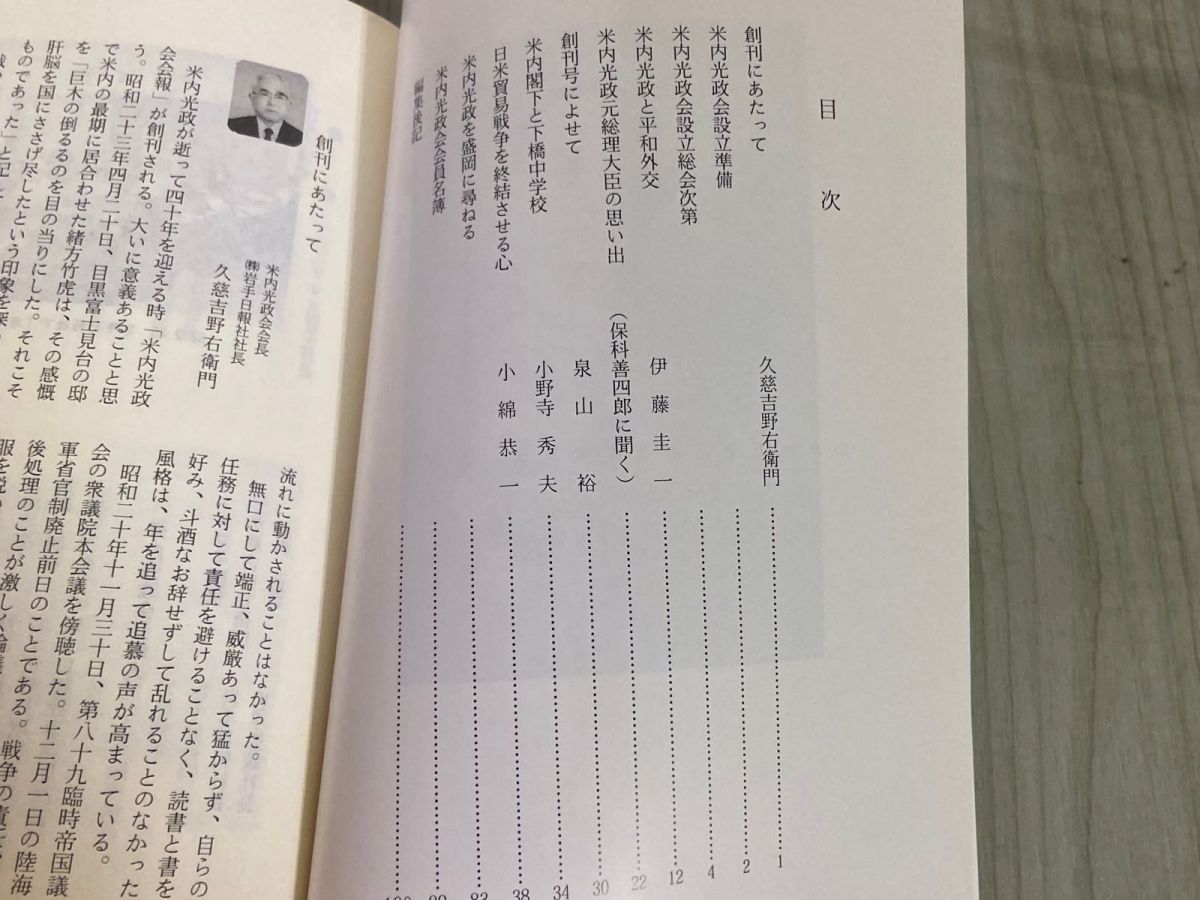 目次
創刊にあたって 久慈吉野右衛門 1
米内光政会設立準備 2
米内光政会設立総会次第 4
米内光政と平和外交 伊藤圭一 12
米内光政元総理大臣の思い出 （保科善四郎に聞く） 22
創刊号によせて 泉山裕 30
米内閣下と下橋中学校 小野寺秀夫 34
日米貿易戦争を終結させる心 小綿恭一 38
米内光政を盛岡に尋ねる 83
米内光政会会員名簿
編集後記
創刊にあたって
米内光政会会長
㈱岩手日報社社長
久慈吉野右衛門
米内光政が逝って四十年を迎える時「米内光政
会会報」が創刊される。大いに意義あることと思
う。昭和二十三年四月二十日、目黒富士見台の邸
で米内の最期に居合わせた緒方竹虎は、その感慨
を「巨木の倒るるのを目の当りにした。それこそ
肝脳を国にささげ尽したという印象を深
ものであった」と記し
流れに動かされることはなかった。
無口にして端正、威厳あって猛からず、自らの
任務に対して責任を避けることなく、読書と書を
好み、斗酒なお辞せずして乱れることのなかった
風格は、年を追って追慕の声が高まっている。
昭和二十年十一月三十日、第八十九臨時帝国議
会の衆議院本会議を傍聴した。十二月一日の陸海
軍省官制廃止前日のことである。戦争の責
後処理のことが激しく論
服を脱